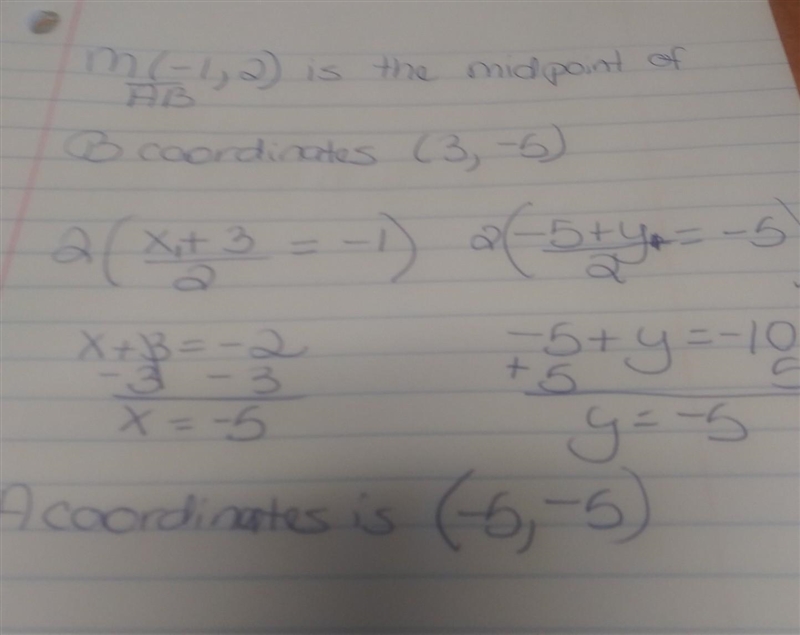 M(-1, 2) is the midpoint of
AB
B coordinates (3, -5)
2(x₁ + 3 / 2 = -1) 2(-5 + y / 2 = -5)
x + 3 = -2 -5 + y = -10
-3 -3 +5 5
x = -5 y = -5
A coordinates is (-5, -5)